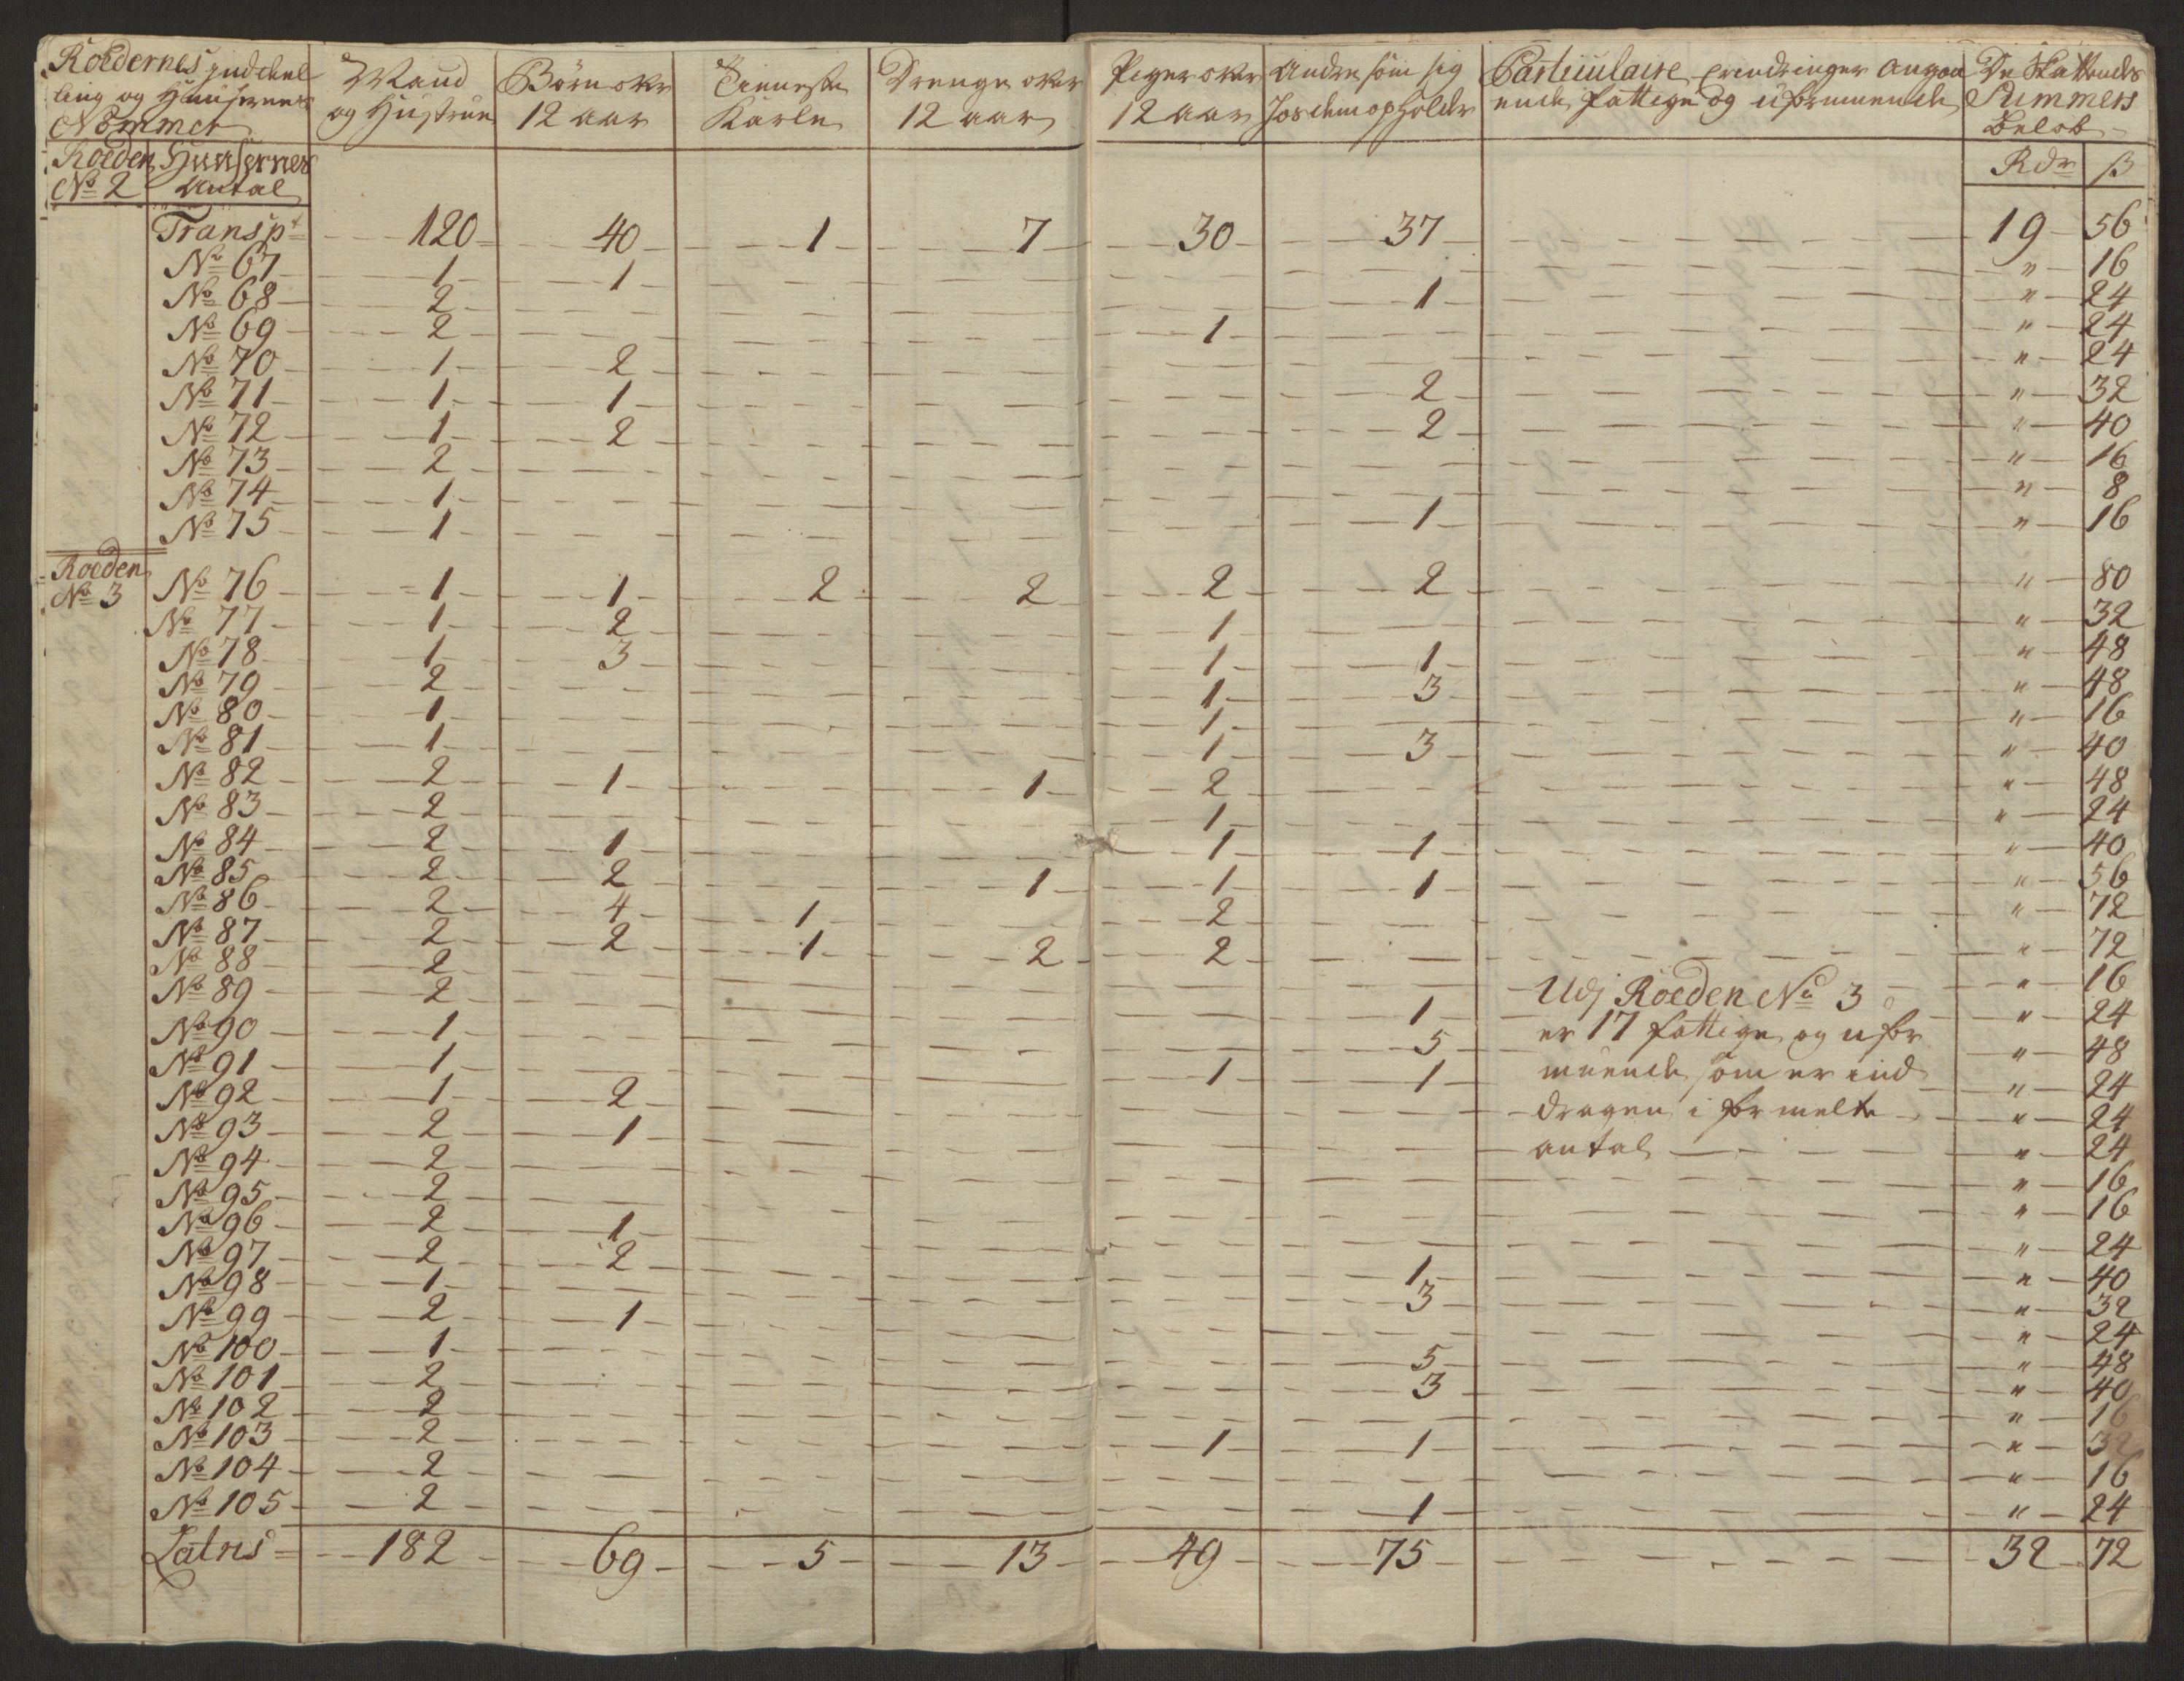 Roedernes inddeel
ling og Huusernes
Nommer
Mand
og Hustrue
Börn over
12 aar
Tieneste
Karle
Drenge over
12 aar
Piger over
12 aar
Andre som sig
hos dem opholder
Particulaire erindringer angaa
ende fattige og uformuende
De Skattendes
Summers
Beløb
Roeden
No 2
Huusernes
Antal
Rdr ß
Transpt 120 40 1 7 30 37 19 56
No 67 1 1 " 16
No 68 2 1 " 24
No 69 2 1 " 24
No 70 1 2 " 24
No 71 1 1 2 " 32
No 72 1 2 2 " 40
No 73 2 " 16
No 74 1 " 8
No 75 1 1 " 16
Roeden
No 3 No 76 1 1 2 2 2 2 " 80
No 77 1 2 1 " 32
No 78 1 3 1 1 " 48
No 79 2 1 3 " 48
No 80 1 1 " 16
No 81 1 1 3 " 40
No 82 2 1 1 2 " 48
No 83 2 1 " 24
No 84 2 1 1 1 " 40
No 85 2 2 1 1 1 " 56
No 86 2 4 1 2 " 72
No 87 2 2 1 2 2 " 72
No 88 2 " 16
No 89 2 1 Udj Roeden No 3 " 24
No 90 1 5 er 17 fattige og ufor " 48
No 91 1 1 1 muende som er ind " 24
No 92 1 2 dragen i formelte " 24
No 93 2 1 antal " 24
No 94 2 " 16
No 95 2 " 16
No 96 2 1 " 24
No 97 2 2 1 " 40
No 98 1 3 " 32
No 99 2 1 " 24
No 100 1 5 " 48
No 101 2 3 " 40
No 102 2 " 16
No 103 2 1 1 " 32
No 104 2 " 16
No 105 2 1 " 24
Latris 182 69 5 13 49 75 32 72